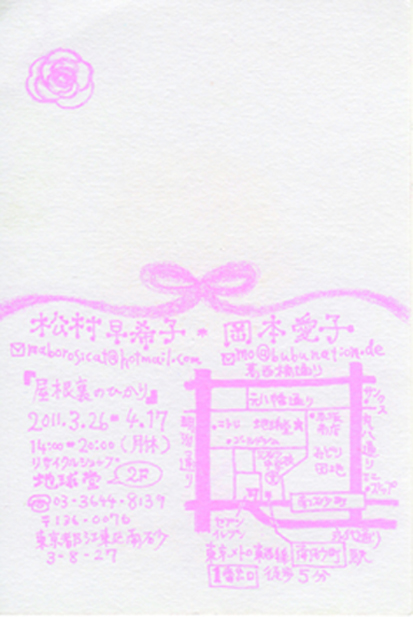 松村早希子 * 岡本愛子
maborosicat@hotmail.com
mo@bubunation.de
『屋根裏のひかり』
2011.3.26 - 4.17
14:00 - 20:00 (月休)
リサイクルショップ
地球堂 2F
☎03-3644-8139
〒136-0076
東京都江東区南砂
3-8-27
葛西橋通り
元八幡通り
サンクス
ニトリ
地球堂
ゴールドジム
みどり
団地
丸八通り
明治通り
エネオス
南砂町
セブン
イレブン
永代通り
東京メトロ東西線 南砂町駅
1番出口 徒歩5分